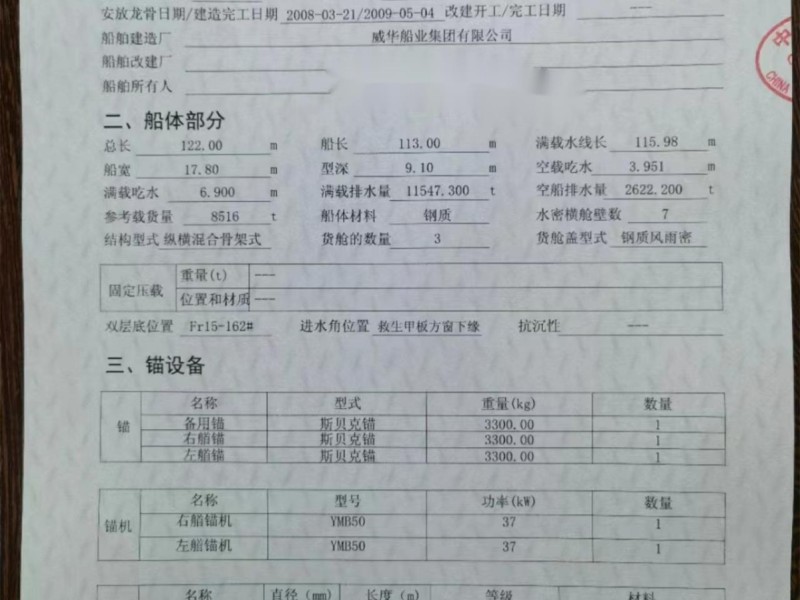 安放龙骨日期/建造完工日期 2008-03-21/2009-05-04 改建开工/完工日期
船舶建造厂 威华船业集团有限公司
船舶改建厂
船舶所有人
二、船体部分
总长 122.00 m 船长 113.00 m 满载水线长 115.98 m
船宽 17.80 m 型深 9.10 m 空载吃水 3.951 m
满载吃水 6.900 m 满载排水量 11547.300 t 空船排水量 2622.200 t
参考载货量 8516 t 船体材料 钢质 水密横舱壁数 7
结构型式 纵横混合骨架式 货舱的数量 3 货舱盖型式 钢质风雨密
固定压载 重量(t) ---
位置和材质 ---
双层底位置 Fr15-162# 进水角位置 救生甲板方窗下缘 抗沉性 ---
三、锚设备
锚 名称 型式 重量(kg) 数量
备用锚 斯贝克锚 3300.00 1
右艏锚 斯贝克锚 3300.00 1
左艏锚 斯贝克锚 3300.00 1
锚机 名称 型号 功率(kW) 数量
右艏锚机 YMB50 37 1
左艏锚机 YMB50 37 1
名称 直径(mm) 长度(m) 等级 材料
中
CHINA